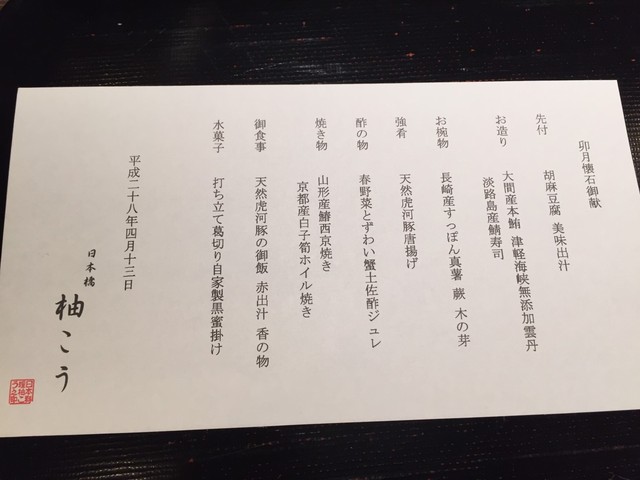 卯月懐石御献
先付　胡麻豆腐 美味出汁
お造り　大間産本鮪 津軽海峡無添加雲丹
淡路島産鯖寿司
お椀物　長崎産すっぽん真薯 蕨 木の芽
強肴　天然虎河豚唐揚げ
酢の物　春野菜とずわい蟹土佐酢ジュレ
焼き物　山形産鰆西京焼き
京都産白子筍ホイル焼き
御食事　天然虎河豚の御飯 赤出汁 香の物
水菓子　打ち立て葛切り自家製黒蜜掛け
平成二十八年四月十三日
日本橋
柚こう